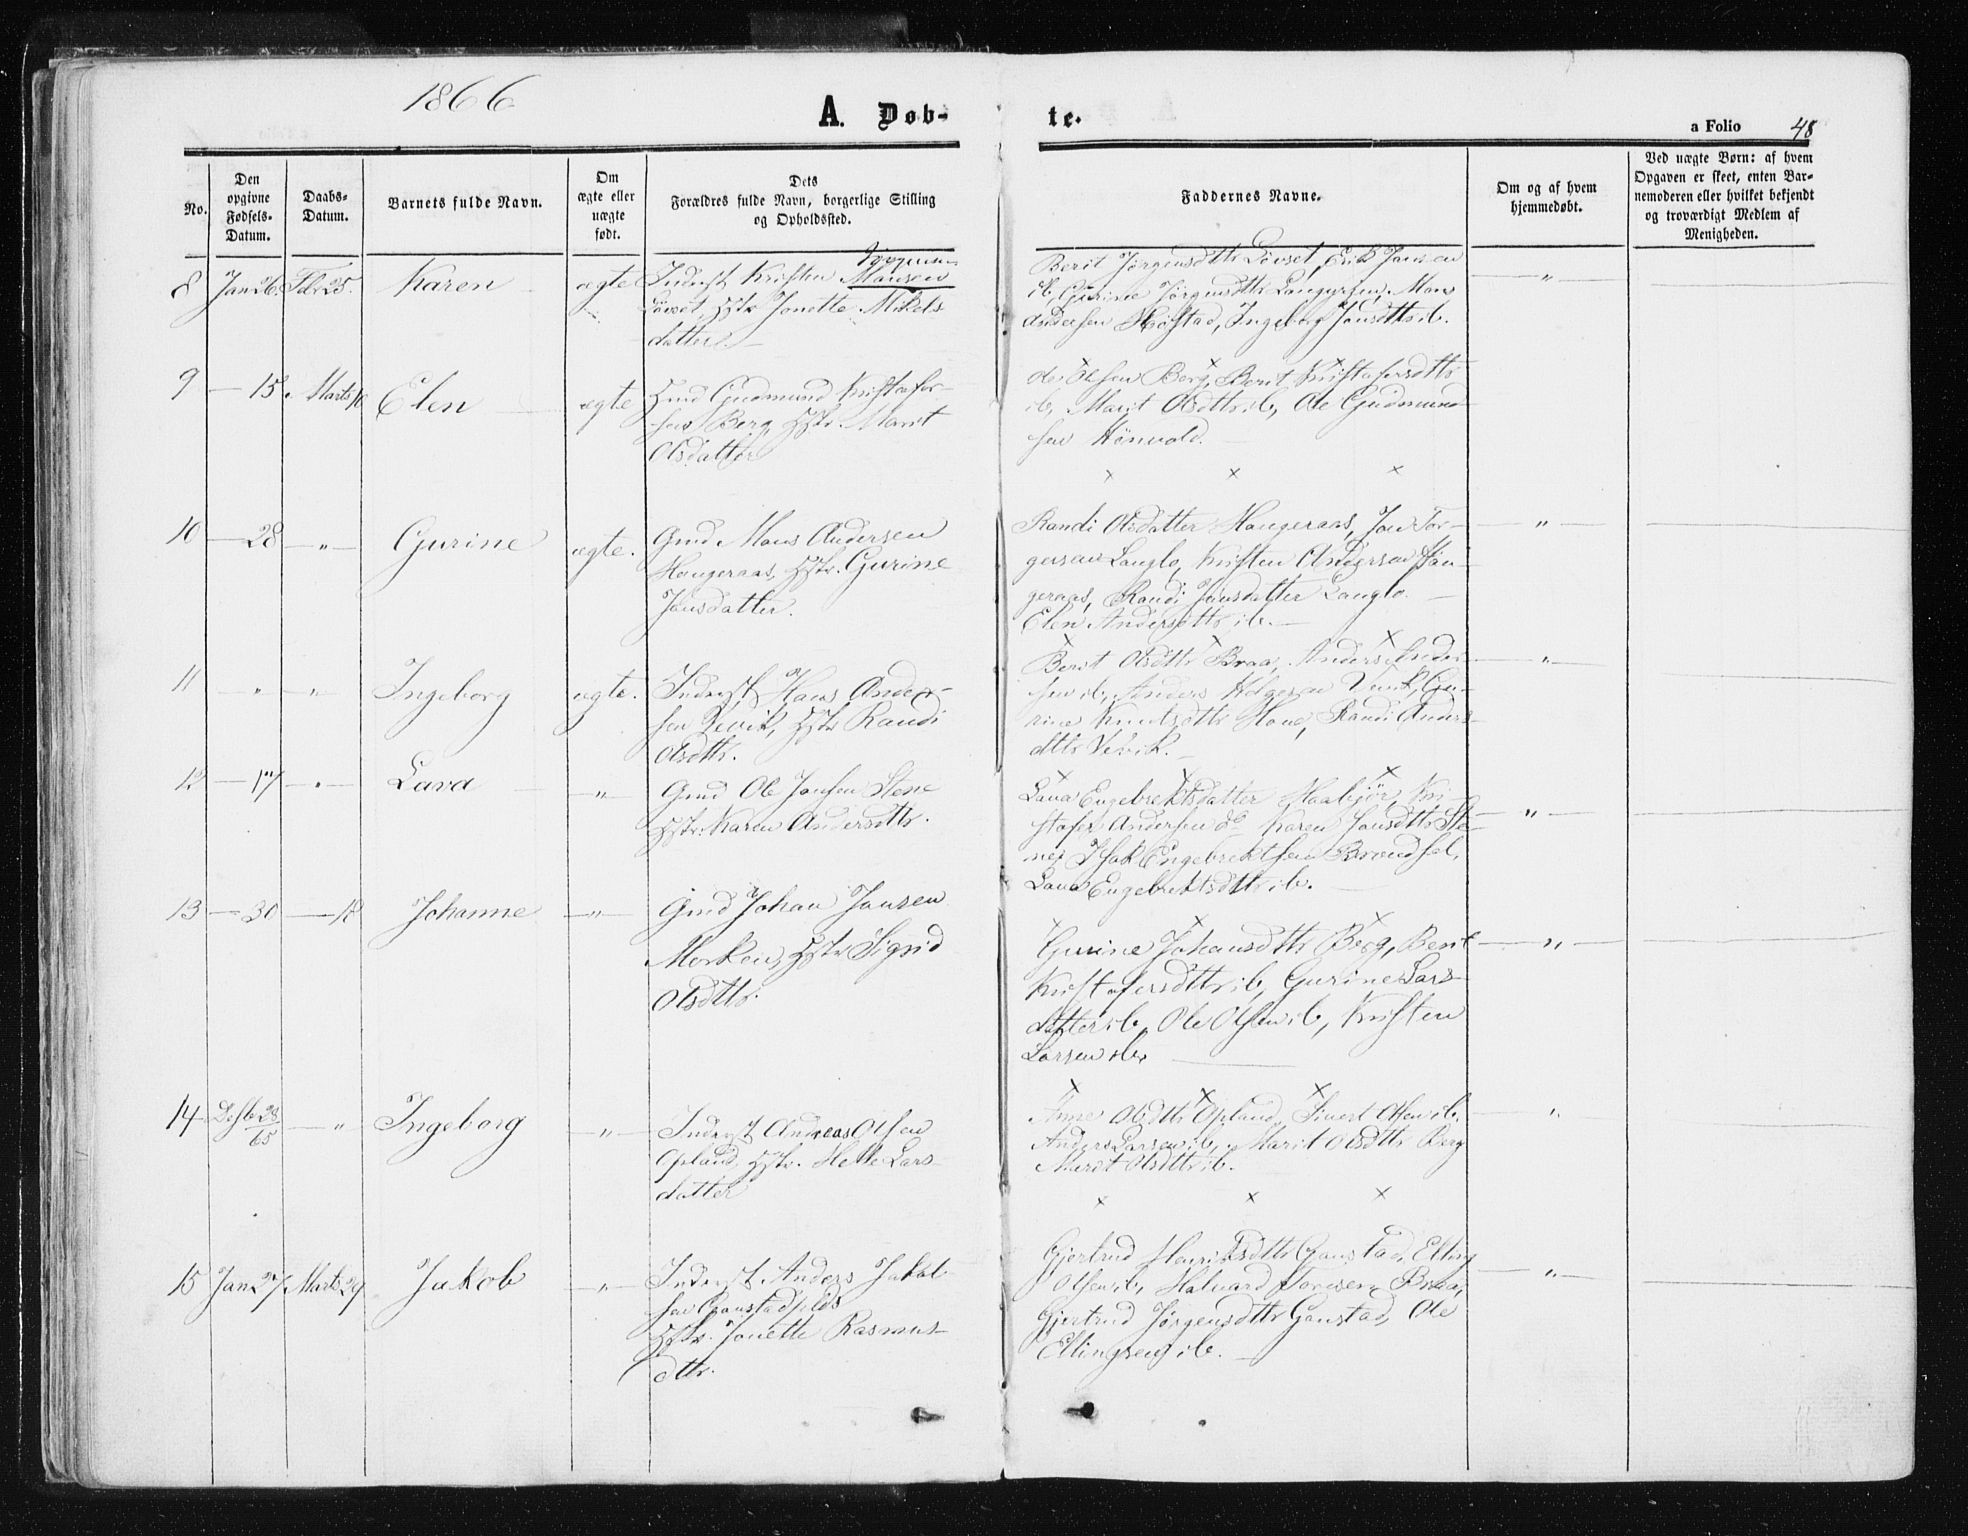 1866
A. Døb-
te.
a Folio 48
No.
Den
opgivne
Fødsels-
Datum.
Daabs-
Datum.
Barnets fulde Navn.
Om
ægte eller
uægte
født.
Dets
Forældres fulde Navn, borgerlige Stilling
og Opholdssted.
Faddernes Navne.
Om og af hvem
hjemmedøbt.
Ved uægte Børn: af hvem
Opgaven er skeet, enten Bar-
nemoderen eller hvilket bekjendt
og troværdigt Medlem af
Menigheden.
8 Jan 26. Febr 25. Karen ægte Inderst Kristen Mansen
Løvset, Hstr Jonette Mikels
datter.
Berit Jørgensdttr Løvset, Erik Jansen
ib, Gurine Jørgensdttr, Mons
Andersen Hofstad, Ingeborg Jonsdttr ib.
"
9 — 15 Marts Elen ægte Gmd Gudmund Kristofer-
sen Berg, Hstr. Marit
Olsdatter
Ole Olsen Berg, Berit Kristofersdttr
ib, Marit Olsdttr ib, Ole Gudmund-
sen
x x x
10 — 28 — " — Gjurine ægte. Gmd Mons Andersen
Haugeraas, Hstr. Gurine
Jonsdatter.
Randi Olsdatter Haugeraas, Jon Tor-
gersen Langlo, Kristen Andersen Hau-
geraas, Randi Jonsdatter Langlo.
Elen Andersdttr ib. —
"
11 " " Ingeborg ægte. Inderst Hans Ander-
sen Vevik, Hstr Randi
Olsdttr.
Berit Olsdttr Braa, Anders Ander
sen ib, Anders Holgersen Vevik, Gu-
rine Knutsdttr, Randi Anders-
dttr Vevik.
"
12 — 17 " Lava — " — Gmd Ole Jonsen Stene
Hstr. Karen Andersdttr.
Lava Engebrektsdatter, Kri-
stofer Andersen do Karen Jonsdttr Ste-
ne, Isak Engebrektsen
Lava Engebrektsdttr ib.
"
13 — 30 — 18 Johanne — " — Gmd Johan Jansen
Morken, Hstr Sigrid
Olsdttr.
Gurine Johansdttr Berg, Berit
Kristofersdttr ib, Gurine Lars-
datter ib, Ole Olsen ib, Kristen
Larsen ib.
"
14 Desbr 28/65 — " Ingeborg — " — Inderst Andreas Olsen
Opland, Hstr. Lars-
datter
Anne Olsdttr Opland, Sivert Olsen ib.
Anders Larsen ib, Marit Olsdttr Berg
Marit Olsdttr ib.
x x x
"
15 Jan 27 Marts 29 Jakob — " — Inderst Anders Jakob-
sen
Hstr. Jonette Rasmus-
dttr.
Gjertrud Henriksdttr Ganstad, Elling
Olsen ib, Halvard Braa,
Gjertrud Jørgensdttr Ganstad, Ole
Ellingsen ib. —
"